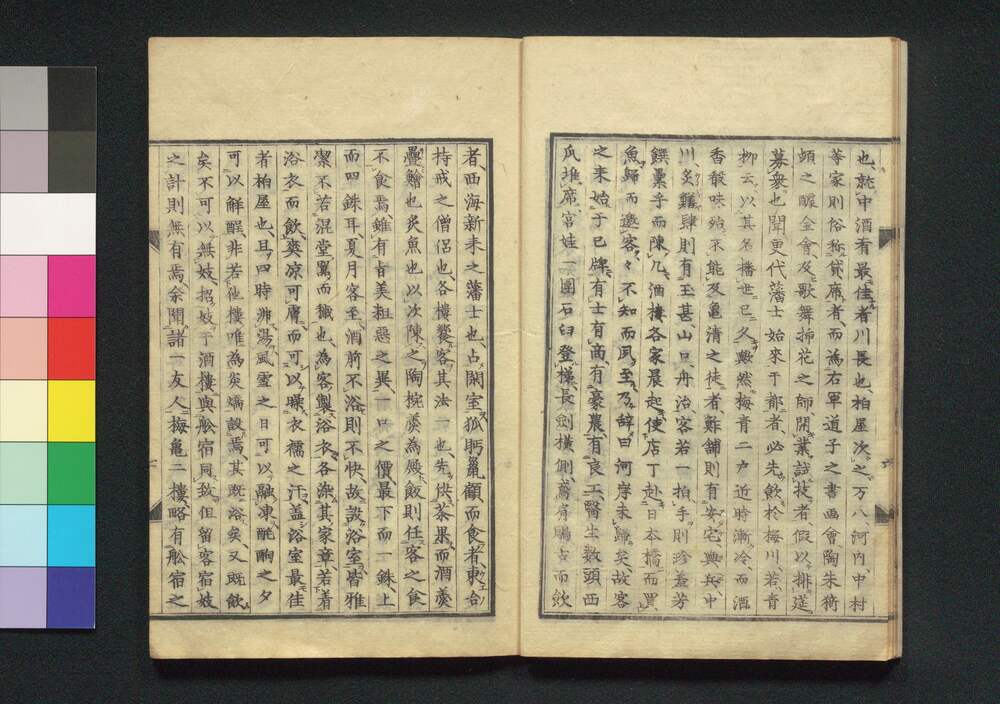 也、就中酒肴最佳者川長也、柏屋次之、万八、河内、中村
等家則俗称貸席者、而為右軍道子之書画會、陶朱猗
頓之醵金會、及歌舞挿花之師、開業試技者、假以排筵
募衆也、聞更代藩士始來于都者、必先飲於梅川、若青
柳云、以其名播世已久歟、然梅青二戸近時漸冷、而酒
香殽味殆不能及亀清之徒者、鮓舗則有安宅與兵、中
川、炙雞肆則有玉甚山只、舟治、客若一拍手、則珍羞芳
饌累乎而陳几、酒樓各家晨起、使店丁赴日本橋而買
魚、歸而邀客、々不知而風至、乃辞曰河岸未歸矣、故客
之来始于巳牌、有士有商、有豪農、有良工、醫生数頭西
瓜堆席、宮娃一團石臼登樓、長劍横側、鳶肩鴟吉而飲
者、西海新来之藩士也、占閑室狐肭鼠顧而食者、東台
持戒之僧侶也、各樓饗客其法一也、先供茶果、而酒羹
疊鱠也炙魚也以次陳之、陶椀羹為殿、飯則任客之食
不食焉、雖有旨美粗惡之異、一口之價、最下不而一銖、上
而四銖耳、夏月客至、酒前不浴則不快、故設浴室、皆雅
潔不若混堂鬻而穢也、為客製浴衣、各染其家章、若着
浴衣而飲、爽凉可膚而可以曝衣襦之汗、盖浴室最佳
者柏屋也、且四時沸湯、風雪之日可以融凍、酩酊之夕
可以解酲、非若他樓唯為炎熇設焉、其既浴矣、又既飲
矣、不可以無妓、招妓于酒樓與舩宿同致、但留客宿妓
之計則無有焉、余聞諸一友人、梅亀二樓略有舩宿之